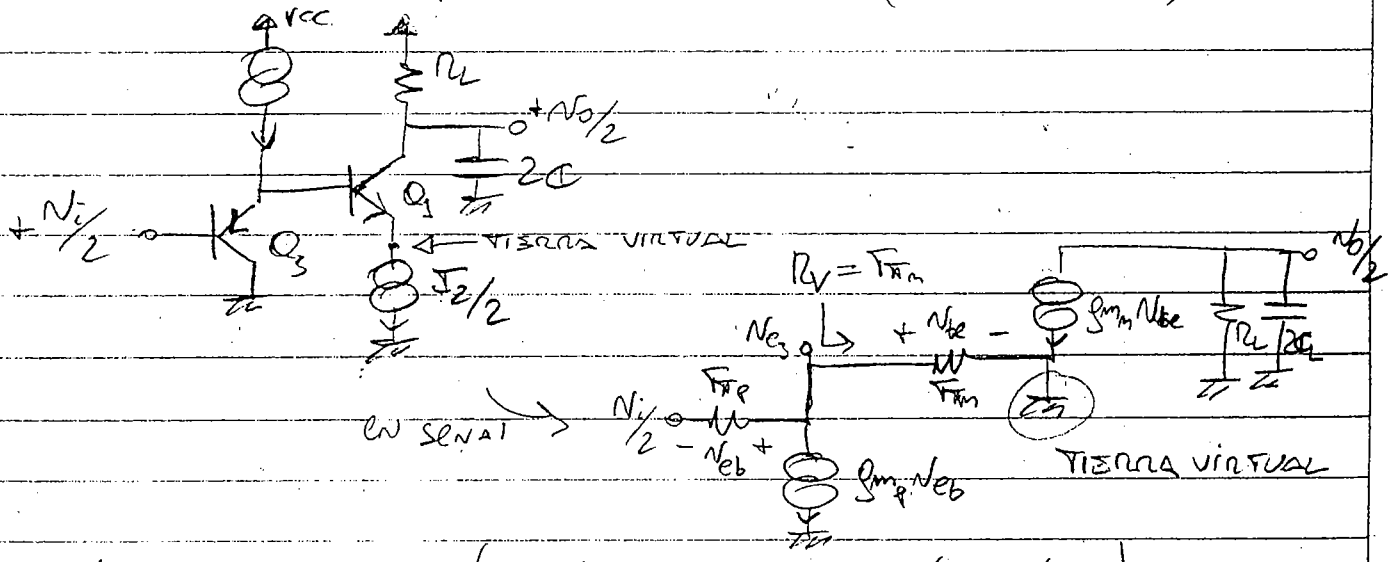 VCC
RL
+ No/2
2C
+ Ni/2
Q3
Q1
TIERRA VIRTUAL
I2/2
RV = rπn
Ne3
+ Nbe -
rπn
gmn Nbe
No/2
RL
2CL
en señal
Ni/2
rπp
- Neb +
gmp Neb
TIERRA VIRTUAL